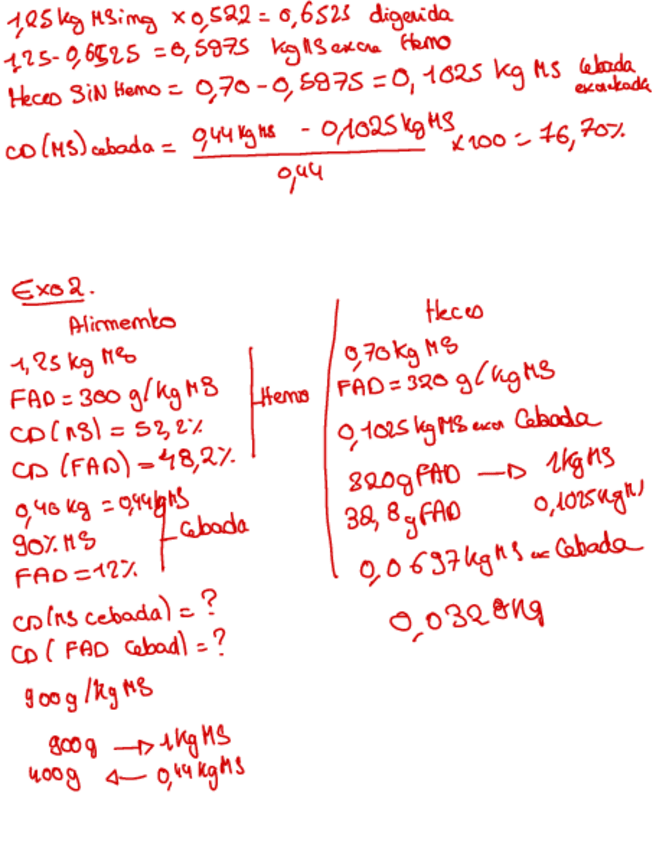 1,25 kg MSimg x 0,522 = 0,6525 digerida
1,25 - 0,6525 = 0,5975 kg MS excre Heno
Heces SiN Heno = 0,70 - 0,5975 = 0,1025 kg MS Cebada excretada
CD (MS) cebada = (0,44 kg MS - 0,1025 kg MS) / 0,44 x 100 = 76,70%
Exo 2.
Alimento
1,25 kg MS
FAD = 300 g/kg MS
CD (MS) = 52,2%
CD (FAD) = 48,2%
Heno
0,40 kg = 0,44 kg MS
90% MS
FAD = 12%
Cebada
CD (MS cebada) = ?
CD ( FAD Cebad) = ?
900 g/kg MS
900g → 1 kg MS
400g ← 0,44 kg MS
Heces
0,70 kg MS
FAD = 320 g/kg MS
0,1025 kg MS excr Cebada
320g FAD → 1 kg MS
32,8 g FAD 0,1025 kg MS
0,0697 kg MS exc Cebada
0,0328 kg